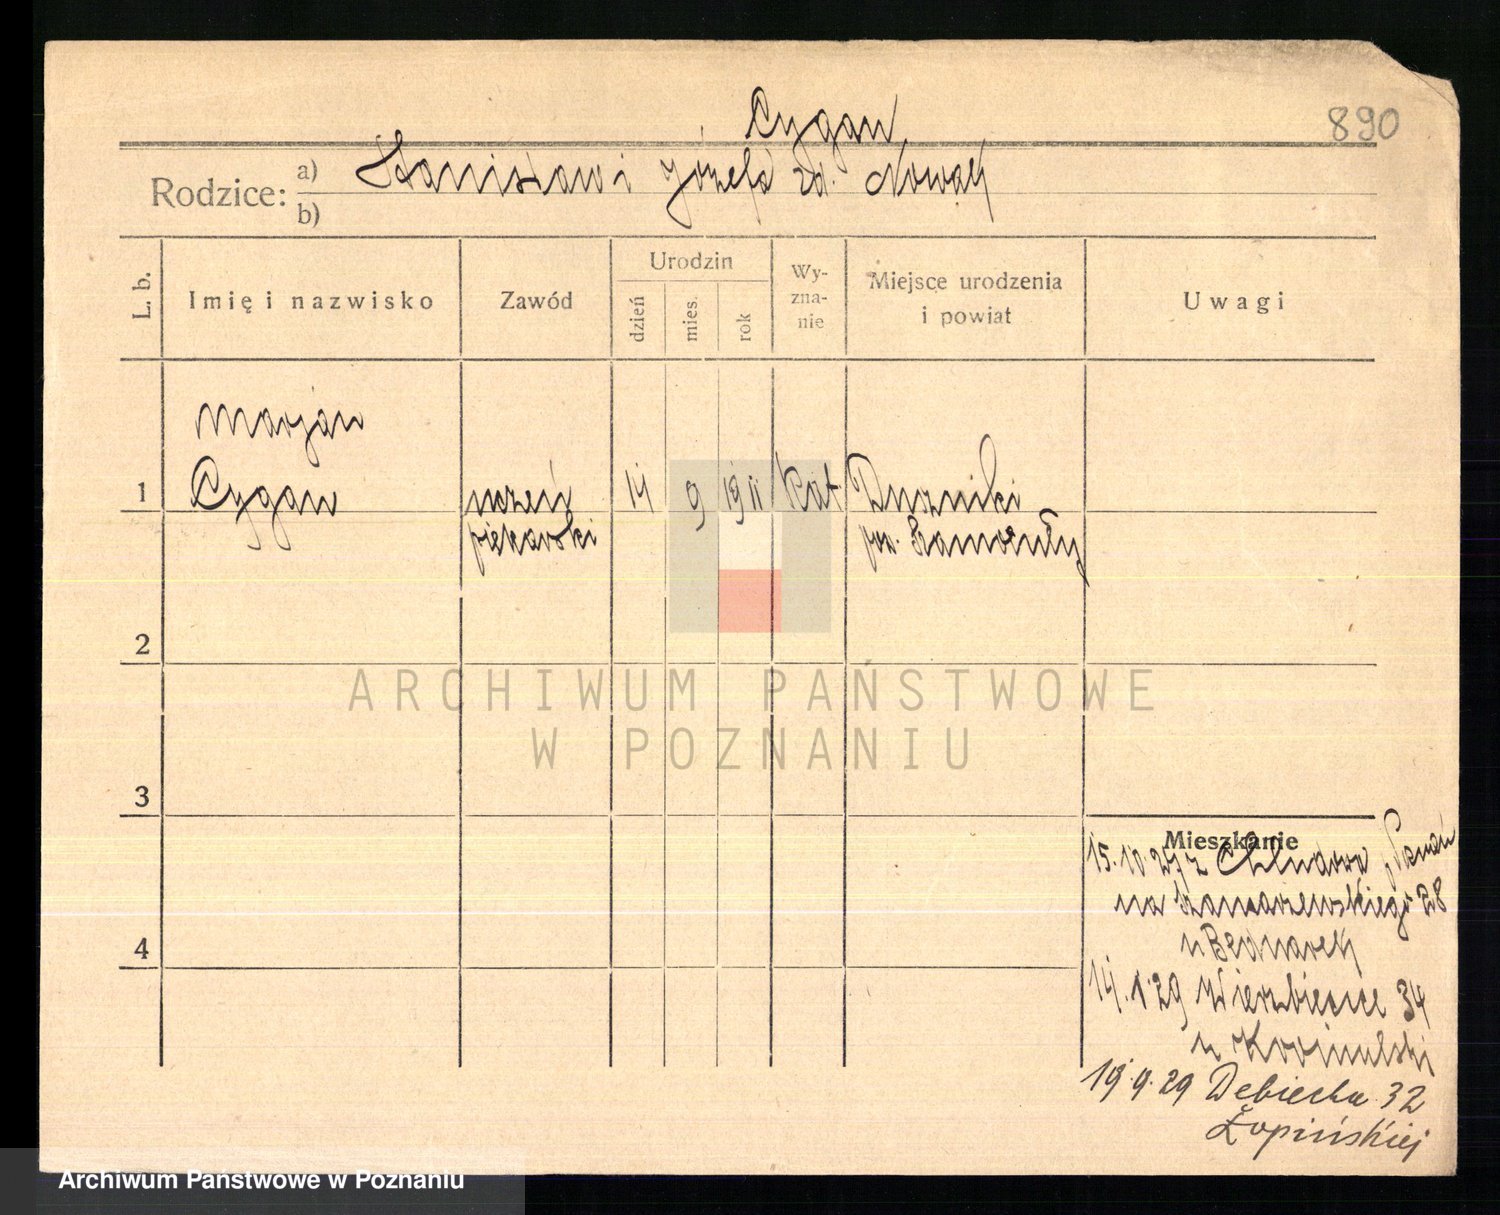 Cygan
890
Rodzice:
a) Stanisław i Józefa zd. Nowak
b)
L. b.
Imię i nazwisko
Zawód
Urodzin
dzień
mies.
rok
Wy-
zna-
nie
Miejsce urodzenia
i powiat
Uwagi
Marjan
1 Cygan uczeń 14 9 1911 kat Duszniki
piekarski pow. Szamotuły
2
ARCHIWUM PAŃSTWOWE
W POZNANIU
3
Mieszkanie
15.10.27 z Chludowa
na Szamarzewskiego 28
u Bednarek
4
14.1.29 Wierzbięcice 34
u
19.9.29 Dębiecka 32
Łopińskiej
Archiwum Państwowe w Poznaniu